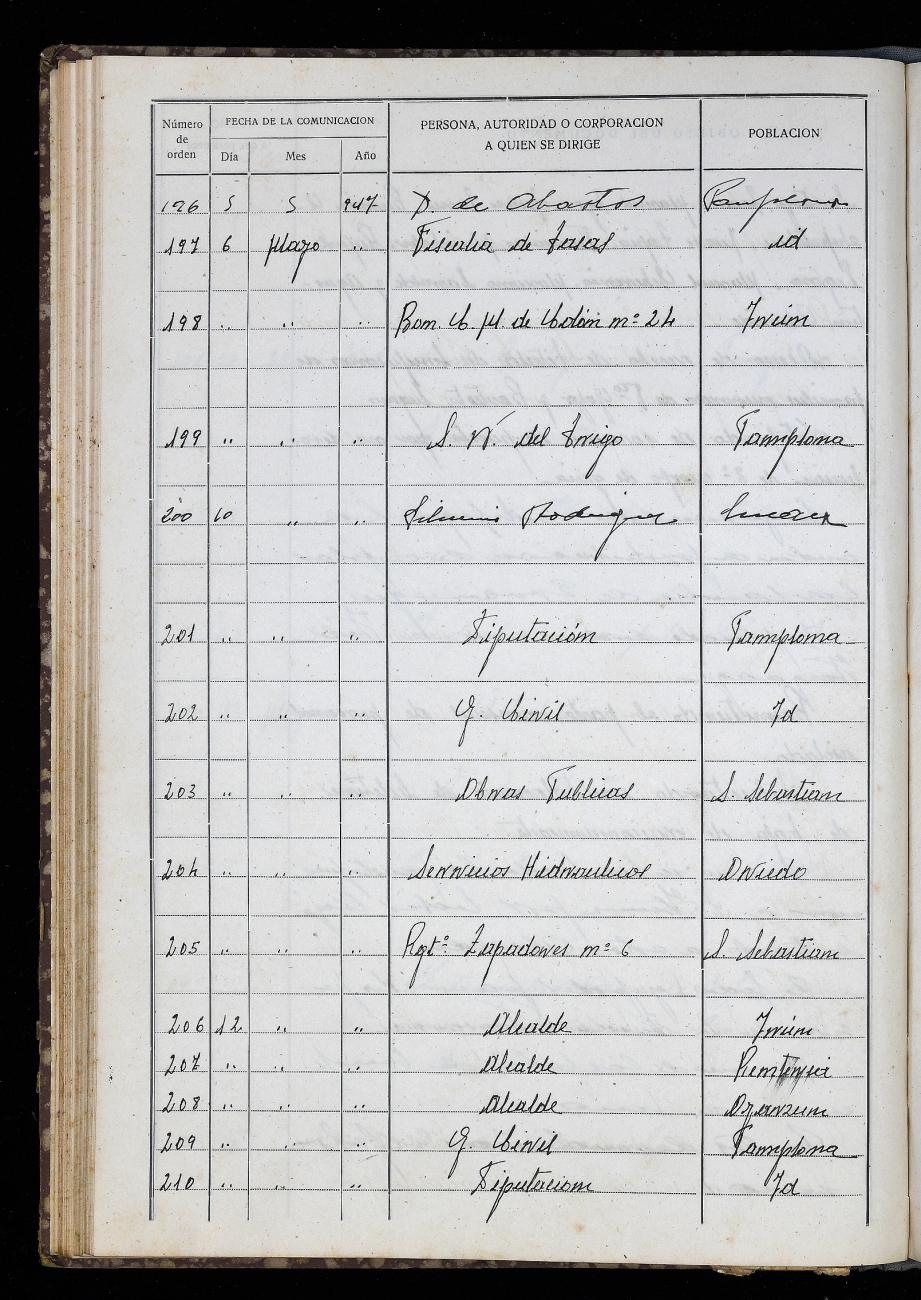 Número de orden FECHA DE LA COMUNICACION PERSONA, AUTORIDAD O CORPORACION A QUIEN SE DIRIGE POBLACION
Día Mes Año
196 5 5 947 D. de Abastos Pamplona
197 6 Mayo " Fiscalia de tasas id
198 " " " Bon. C. M. de Colón nº 24 Irún
199 " " " S. N. del trigo Pamplona
200 10 " " Rodriguez
201 " " " Diputación Pamplona
202 " " " G. Civil Id
203 " " " Obras Publicas S. Sebastian
204 " " " Servicios Hidraulicos Oviedo
205 " " " Rgtº Zapadores nº 6 S. Sebastian
206 12 " " Alcalde Irún
207 " " " Alcalde
208 " " " Alcalde Oyarzun
209 " " " G. Civil Pamplona
210 " " " Diputacion Id